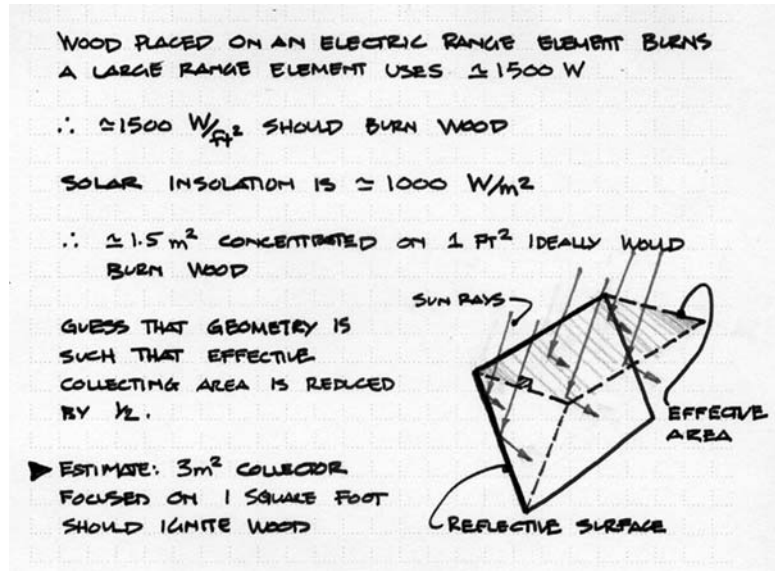 WOOD PLACED ON AN ELECTRIC RANGE ELEMENT BURNS
A LARGE RANGE ELEMENT USES ≃ 1500 W
∴ ≃1500 W/ft² SHOULD BURN WOOD
SOLAR INSOLATION IS ≃ 1000 W/m²
∴ ≃ 1.5 m² CONCENTRATED ON 1 FT² IDEALLY WOULD
BURN WOOD
GUESS THAT GEOMETRY IS
SUCH THAT EFFECTIVE
COLLECTING AREA IS REDUCED
BY ½.
▶ ESTIMATE: 3m² COLLECTOR
FOCUSED ON 1 SQUARE FOOT
SHOULD IGNITE WOOD
SUN RAYS
EFFECTIVE
AREA
REFLECTIVE SURFACE